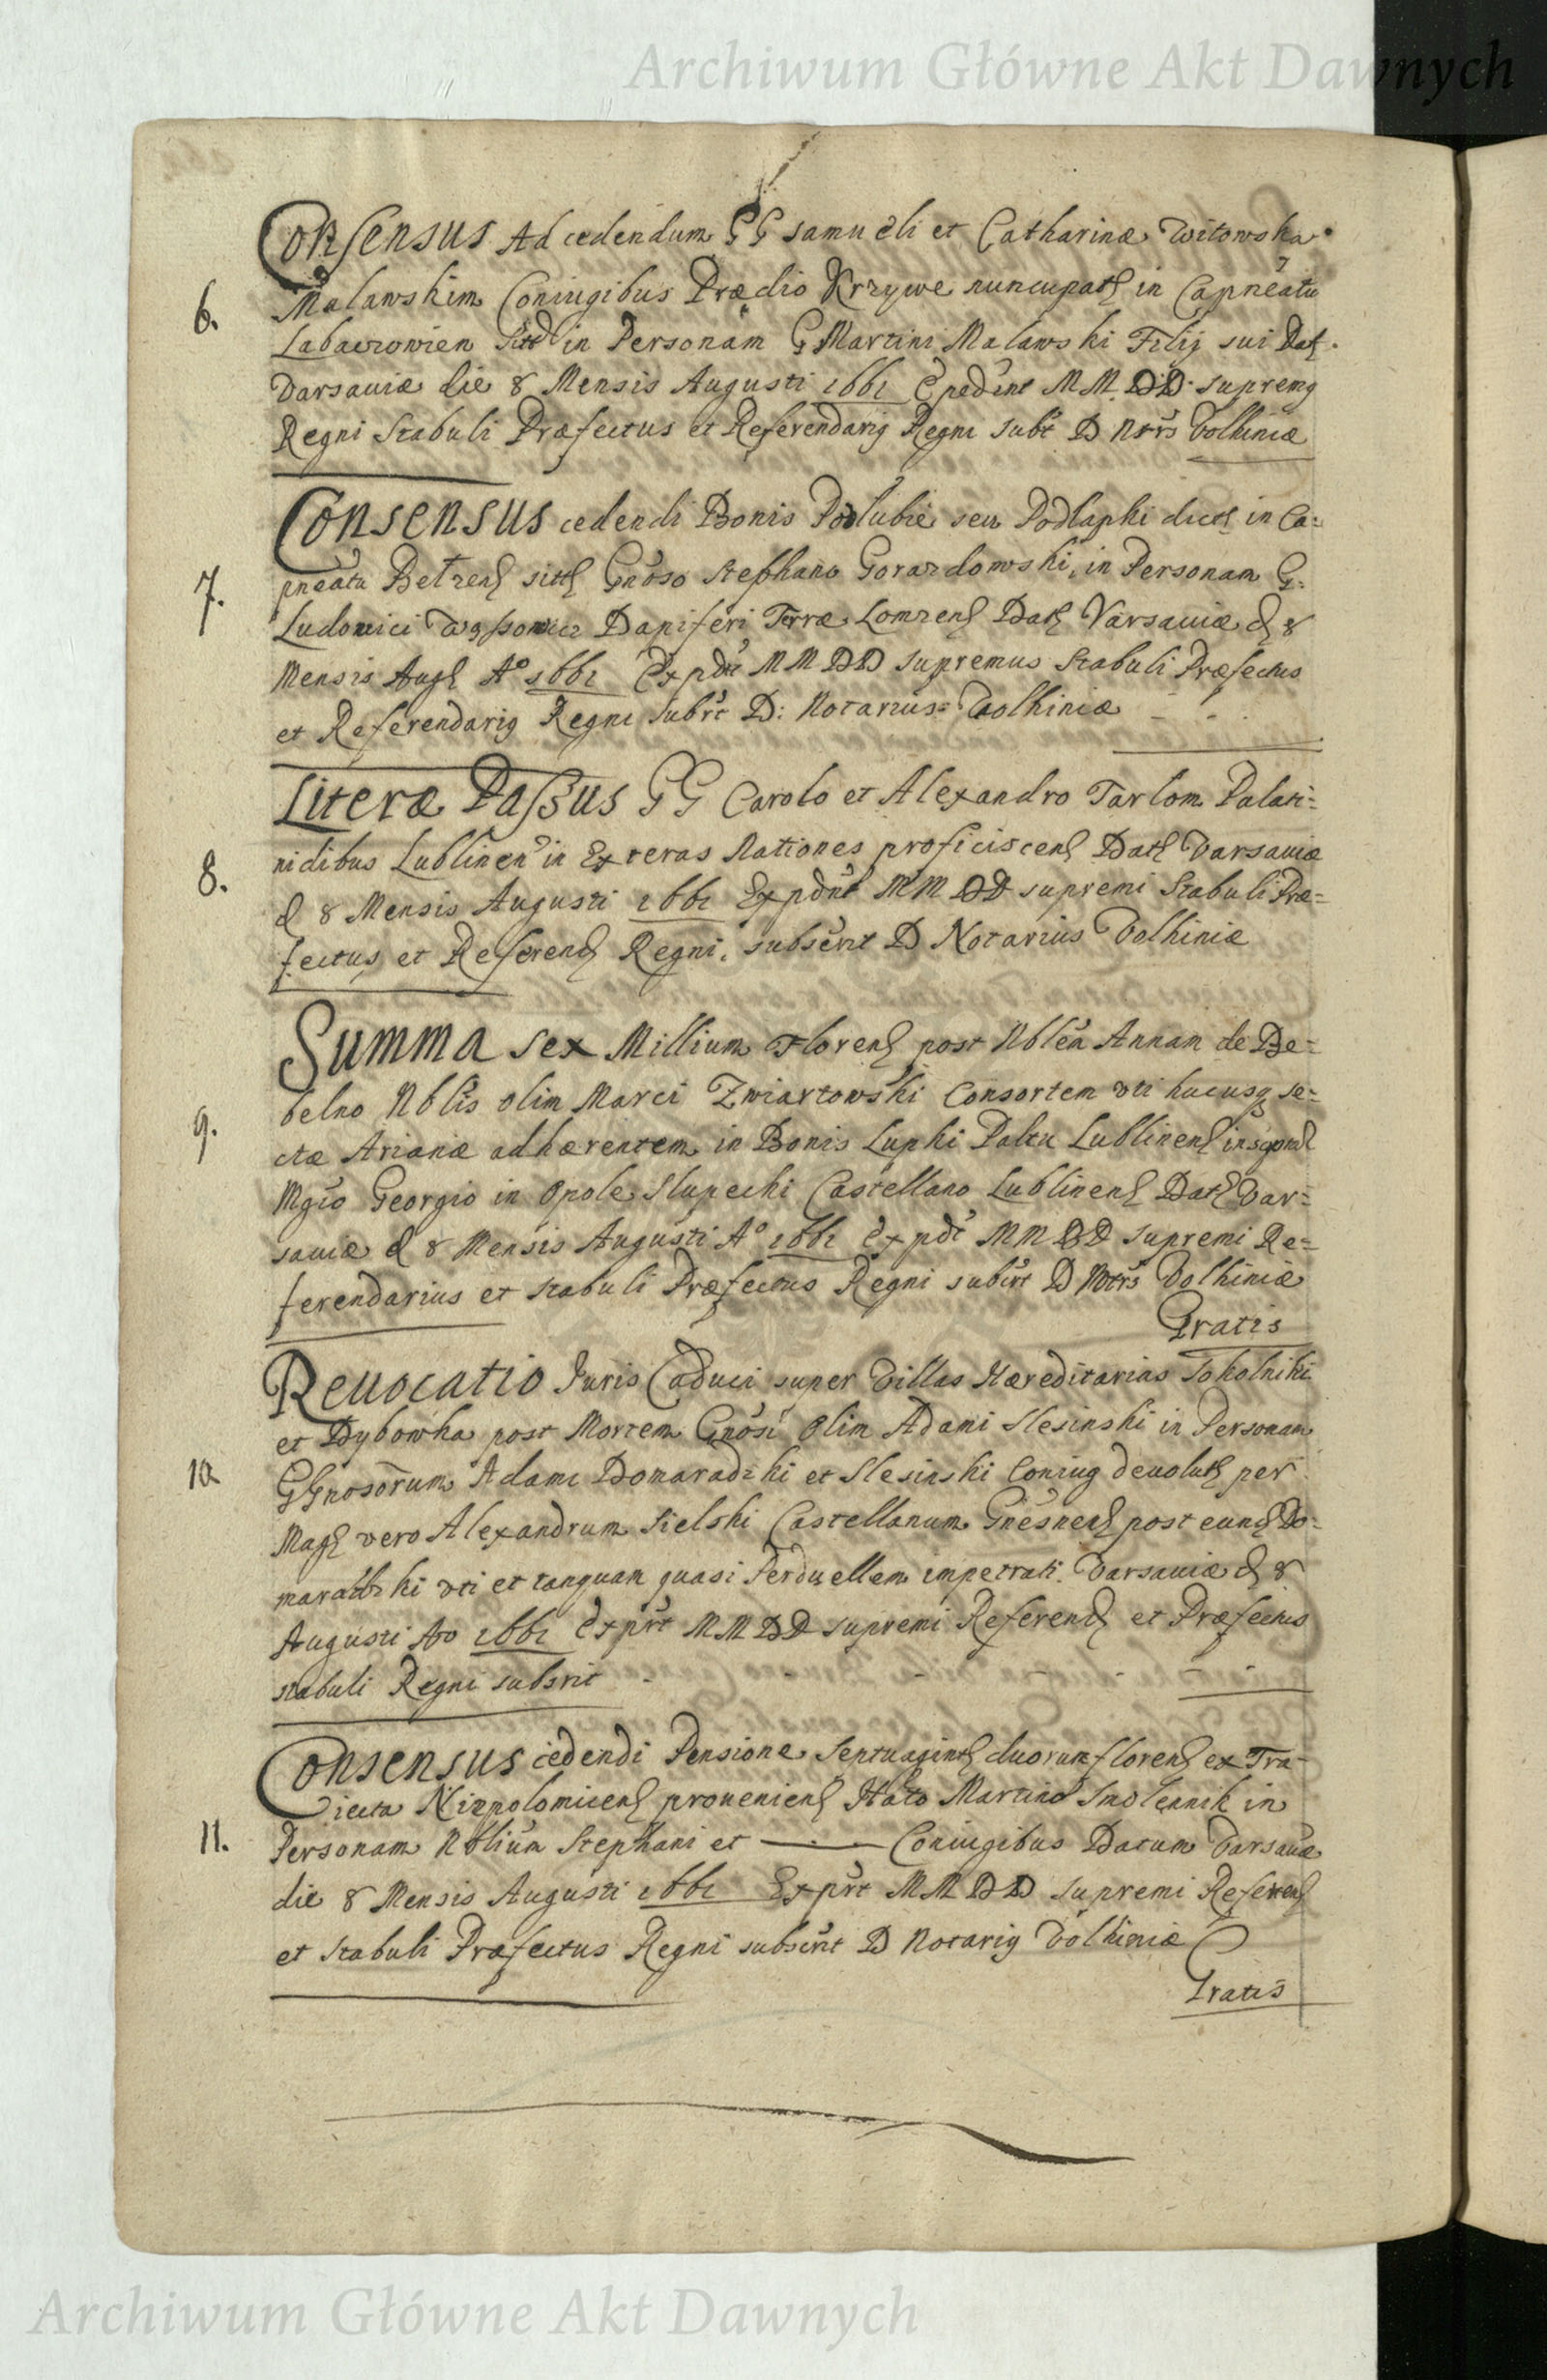 Archiwum Główne Akt Dawnych
Consensus Ad cedendum GG Samueli et Catharinæ Witowska
6. Malawskim Coniugibus Prædio Krzywe nuncupatt in Capneatu
in Personam G Martini Malawski Filij sui Dat.
Varsauiæ die 8 Mensis Augusti 1661 Expedient MM. DD. Supremg
Regni Stabuli Præfectus et Referendarig Regni subt D Ntrs Volhiniæ
Consensus cedendi Bonis Podlubie seu Podlapki dict in Ca=
7. pneatu Belzen sitt Gnoso Stephano Gorazdowski, in Personam G:
Ludovici Dapiferi Terræ Lomzen Dat Varsauiæ d 8
Mensis Aug A° 1661 Expdit MM DD Supremus Stabuli Præfectus
et Referendarig Regni subrt D: Notarius Volhiniæ
Literæ Passus GG Carolo et Alexandro Tarlom Palati=
8. nidibus Lublinen in Exteras Nationes proficiscen Dat Varsauiæ
d 8 Mensis Augusti 1661 Expdnt MM DD supremi Stabuli Præ=
fectus et Referend Regni, subscrit D Notarius Volhiniæ
Summa sex Millium Floren post Nblem Annam de De=
9. belno Nblis olim Marci Zwiartowski Consortem vti hucusq se=
ctæ Arianæ adhærentem in Bonis Lupki Paltu Lublinen
Mgco Georgio in Opole Slupecki Castellano Lublinen Dat Var=
sauiæ d 8 Mensis Augusti A° 1661 Expdt MM DD supremi Re=
ferendarius et Stabuli Præfectus Regni subscrt D Ntrs Volhiniæ
Gratis
Reuocatio Juris Caduci super Villas Hæreditarias Sokolniki
et Dybowka post Mortem Gnosi olim Adami Slesinski in Personam
10 GGnosorum Adami Domaradzki et Slesinski Coniug deuolut per
Mag vero Alexandrum Sielski Castellanum Gnesnen post eund Do=
maradzki vti et tanquam quasi Perduellem impetrati. Varsauiæ d 8
Augusti Ao 1661 Exprt MM DD supremi Referend et Præfectus
stabuli Regni subsrit
Consensus cedendi Pensione Septuagint duorum floren ex Tra=
iecta Niepolomicen prouenien Hato Martino Smolennik in
11. Personam Nblium Stephani et ——— Coniugibus Datum Varsauæ
die 8 Mensis Augusti 1661 Exprt MM DD supremi Referen
et Stabuli Præfectus Regni subscrit D Notarig Volhiniæ
Gratis
Archiwum Główne Akt Dawnych